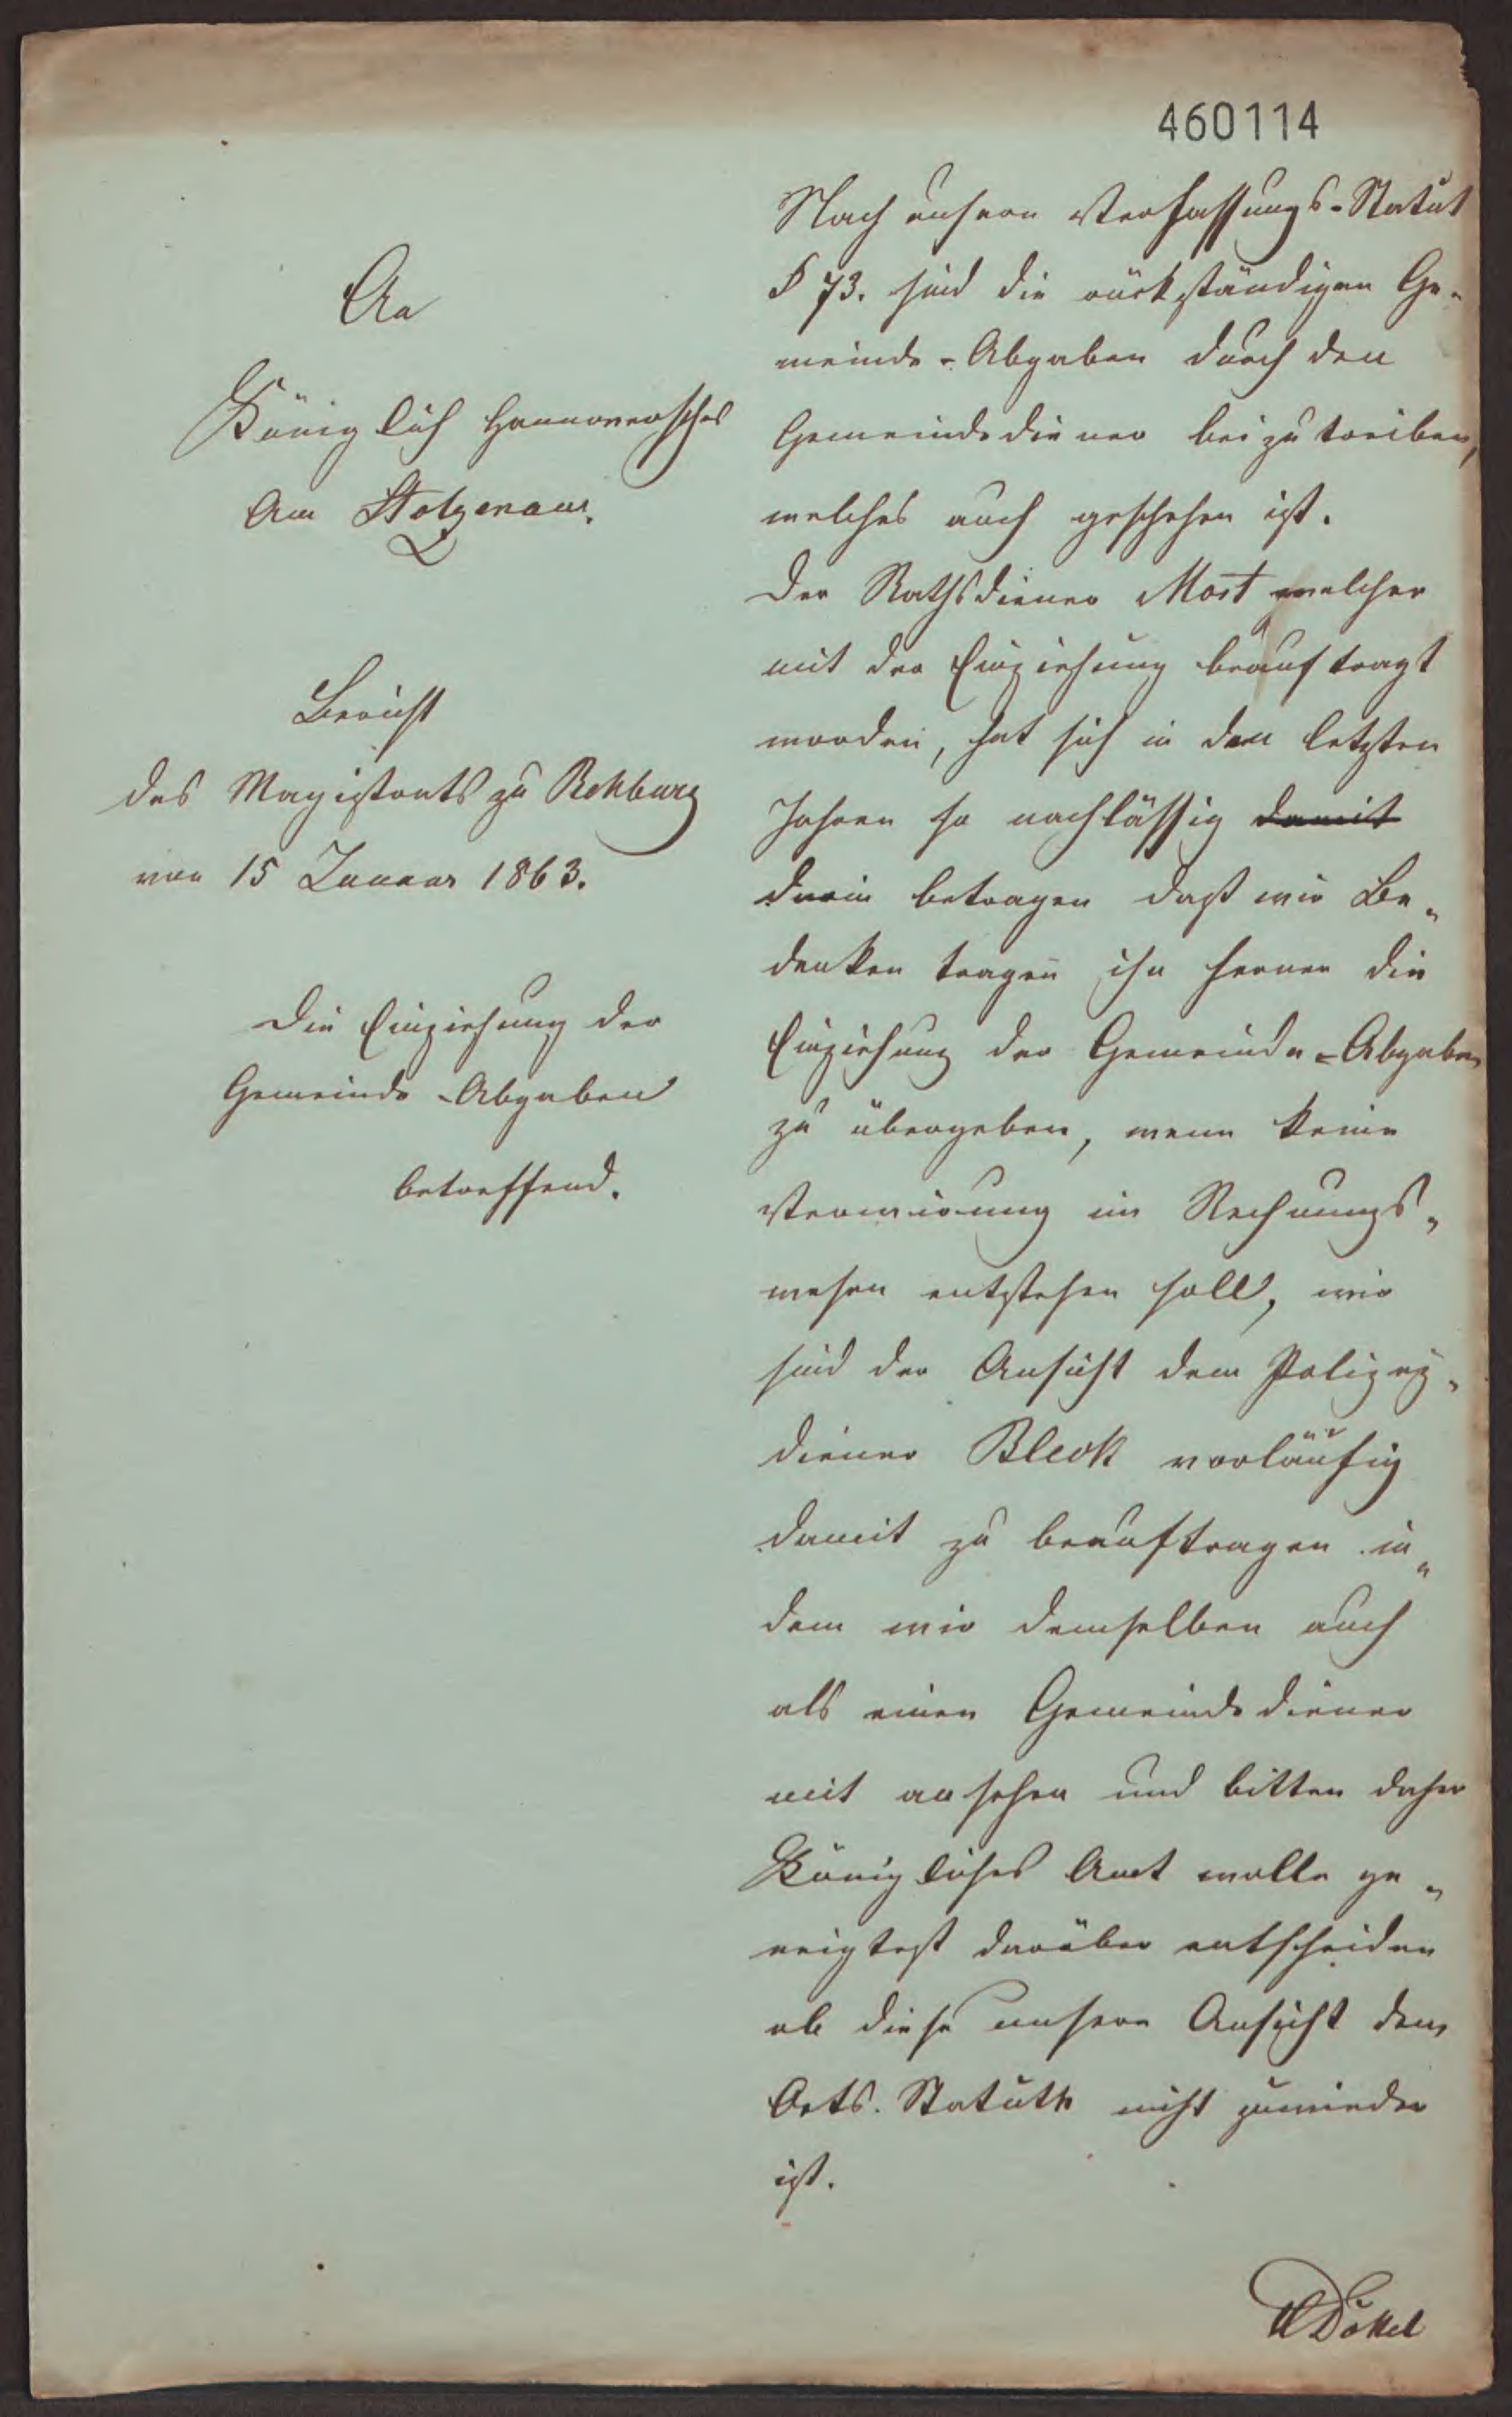 460114
An
Königlich Hannoversches
Am Stolzenau.
Bericht
des Magistrats zu Rehburg
von 15 Januar 1863.
Die Einziehung der
Gemeinde-Abgaben
betreffend.
Nach unsern Verfassungs-Statut
§ 73. sind die rückständigen Ge-
meinde-Abgaben durch den
Gemeindediener beizutreiben,
welches auch geschehen ist.
Der Rathsdiener Most welcher
mit der Einziehung beauftragt
worden, hat sich in den letzten
Jahren so nachlässig damit
darin betragen daß wir Be-
denken tragen ihn ferner die
Einziehung der Gemeinde-Abgaben
zu übergeben, wenn keine
Verwirung im Rechnungs-
wesen entstehen soll, wir
sind der Ansicht dem Polizey-
diener Bleck vorläufig
damit zu beauftragen in-
dem wir demselben auch
als einen Gemeindediener
mit ansehen und bitten daher
Königliches Amt wolle ge-
neigtest darüber entscheiden
ob diese unsere Ansicht dem
Orts. Statuth nicht zuwieder
ist.
Dökel